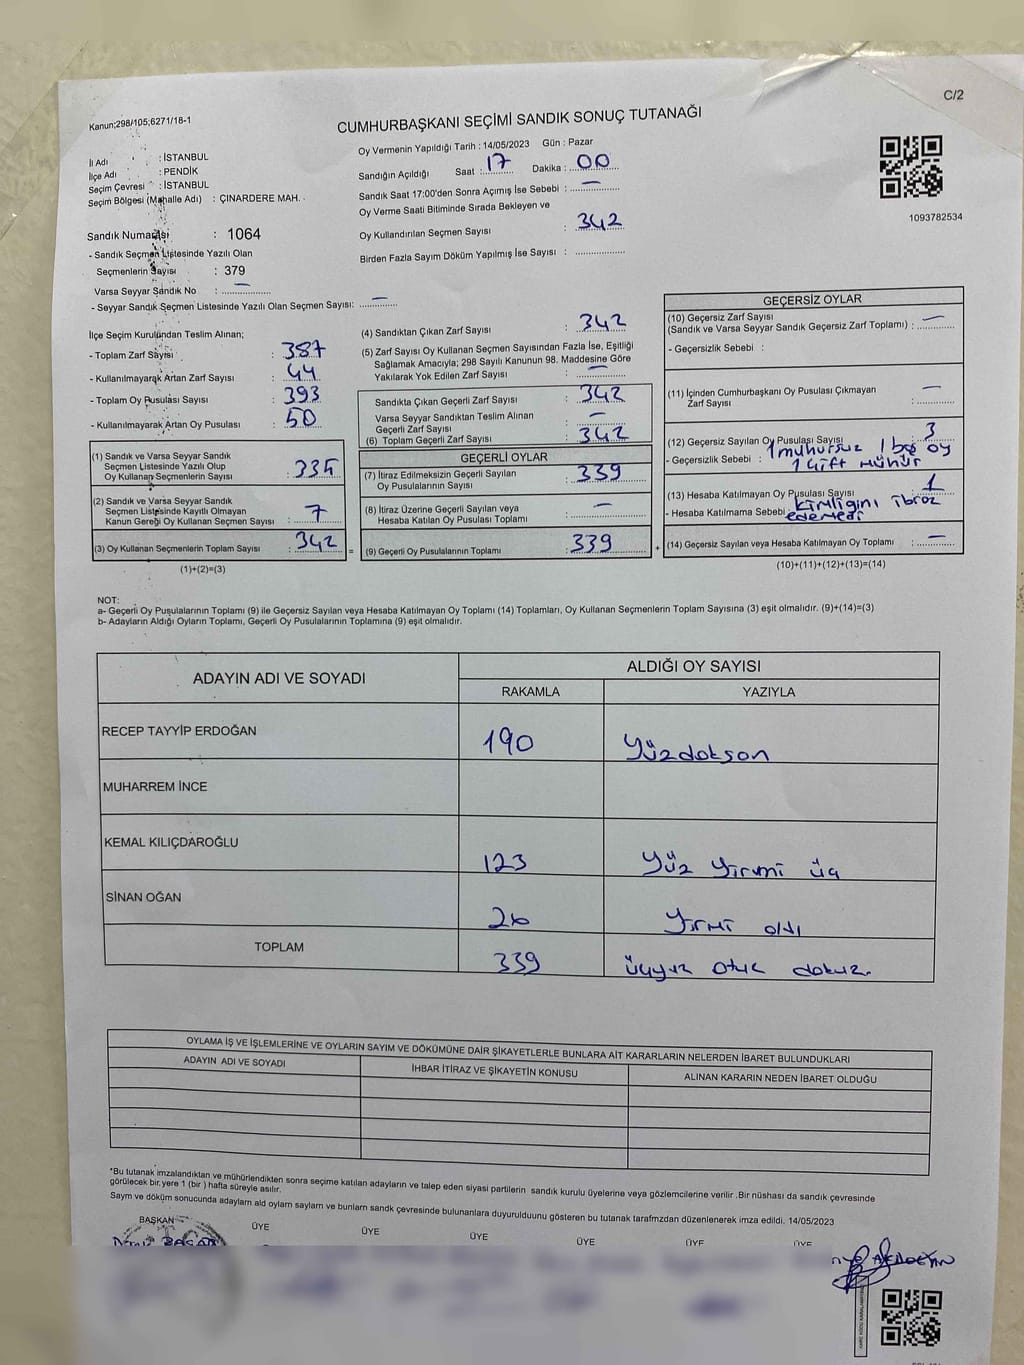 C/2
Kanun;298/105;6271/18-1
CUMHURBAŞKANI SEÇİMİ SANDIK SONUÇ TUTANAĞI
İl Adı : İSTANBUL
İlçe Adı : PENDİK
Seçim Çevresi : İSTANBUL
Seçim Bölgesi (Mahalle Adı) : ÇINARDERE MAH.
Sandık Numarası : 1064
- Sandık Seçmen Listesinde Yazılı Olan
Seçmenlerin Sayısı : 379
Varsa Seyyar Sandık No : —
- Seyyar Sandık Seçmen Listesinde Yazılı Olan Seçmen Sayısı: —
Oy Vermenin Yapıldığı Tarih : 14/05/2023 Gün : Pazar
Sandığın Açıldığı Saat : 17 Dakika : 00
Sandık Saat 17:00'den Sonra Açımış İse Sebebi : —
Oy Verme Saati Bitiminde Sırada Bekleyen ve
Oy Kullandırılan Seçmen Sayısı : 342
Birden Fazla Sayım Döküm Yapılmış İse Sayısı :
1093782534
İlçe Seçim Kurulundan Teslim Alınan;
- Toplam Zarf Sayısı : 387
- Kullanılmayarak Artan Zarf Sayısı : 44
- Toplam Oy Pusulası Sayısı : 393
- Kullanılmayarak Artan Oy Pusulası : 50
(1) Sandık ve Varsa Seyyar Sandık
Seçmen Listesinde Yazılı Olup
Oy Kullanan Seçmenlerin Sayısı : 335
(2) Sandık ve Varsa Seyyar Sandık
Seçmen Listesinde Kayıtlı Olmayan
Kanun Gereği Oy Kullanan Seçmen Sayısı : 7
(3) Oy Kullanan Seçmenlerin Toplam Sayısı : 342 =
(1)+(2)=(3)
(4) Sandıktan Çıkan Zarf Sayısı : 342
(5) Zarf Sayısı Oy Kullanan Seçmen Sayısından Fazla İse, Eşitliği
Sağlamak Amacıyla; 298 Sayılı Kanunun 98. Maddesine Göre
Yakılarak Yok Edilen Zarf Sayısı : —
Sandıkta Çıkan Geçerli Zarf Sayısı : 342
Varsa Seyyar Sandıktan Teslim Alınan
Geçerli Zarf Sayısı : —
(6) Toplam Geçerli Zarf Sayısı : 342
GEÇERLİ OYLAR
(7) İtiraz Edilmeksizin Geçerli Sayılan
Oy Pusulalarının Sayısı : 339
(8) İtiraz Üzerine Geçerli Sayılan veya
Hesaba Katılan Oy Pusulası Toplamı : —
(9) Geçerli Oy Pusulalarının Toplamı : 339 +
GEÇERSİZ OYLAR
(10) Geçersiz Zarf Sayısı
(Sandık ve Varsa Seyyar Sandık Geçersiz Zarf Toplamı) : —
- Geçersizlik Sebebi :
(11) İçinden Cumhurbaşkanı Oy Pusulası Çıkmayan
Zarf Sayısı : —
(12) Geçersiz Sayılan Oy Pusulası Sayısı 3
- Geçersizlik Sebebi : 1 mühürsüz 1 boş oy
1 Çift mühür
(13) Hesaba Katılmayan Oy Pusulası Sayısı 1
- Hesaba Katılmama Sebebi kimliğini ibraz
edemedi
(14) Geçersiz Sayılan veya Hesaba Katılmayan Oy Toplamı : —
(10)+(11)+(12)+(13)=(14)
NOT:
a- Geçerli Oy Puşulalarının Toplamı (9) ile Geçersiz Sayılan veya Hesaba Katılmayan Oy Toplamı (14) Toplamları, Oy Kullanan Seçmenlerin Toplam Sayısına (3) eşit olmalıdır. (9)+(14)=(3)
b- Adayların Aldığı Oyların Toplamı, Geçerli Oy Pusulalarının Toplamına (9) eşit olmalıdır.
ADAYIN ADI VE SOYADI ALDIĞI OY SAYISI
RAKAMLA YAZIYLA
RECEP TAYYİP ERDOĞAN 190 Yüzdoksan
MUHARREM İNCE
KEMAL KILIÇDAROĞLU 123 Yüz Yirmi üç
SİNAN OĞAN 26 Yirmi altı
TOPLAM 339 üçyüz otuz dokuz.
OYLAMA İŞ VE İŞLEMLERİNE VE OYLARIN SAYIM VE DÖKÜMÜNE DAİR ŞİKAYETLERLE BUNLARA AİT KARARLARIN NELERDEN İBARET BULUNDUKLARI
ADAYIN ADI VE SOYADI İHBAR İTİRAZ VE ŞİKAYETİN KONUSU ALINAN KARARIN NEDEN İBARET OLDUĞU
*Bu tutanak imzalandıktan ve mühürlendikten sonra seçime katılan adayların ve talep eden siyasi partilerin sandık kurulu üyelerine veya gözlemcilerine verilir .Bir nüshası da sandık çevresinde
görülecek bir.yere 1 (bir ) hafta süreyle asılır.
Sayım ve döküm sonucunda adayların ald oyların sayların ve bunların sandk çevresinde bulunanlara duyurulduunu gösteren bu tutanak tarafmzdan düzenlenerek imza edildi. 14/05/2023
BAŞKAN ÜYE ÜYE ÜYE ÜYE ÜYE ÜYE